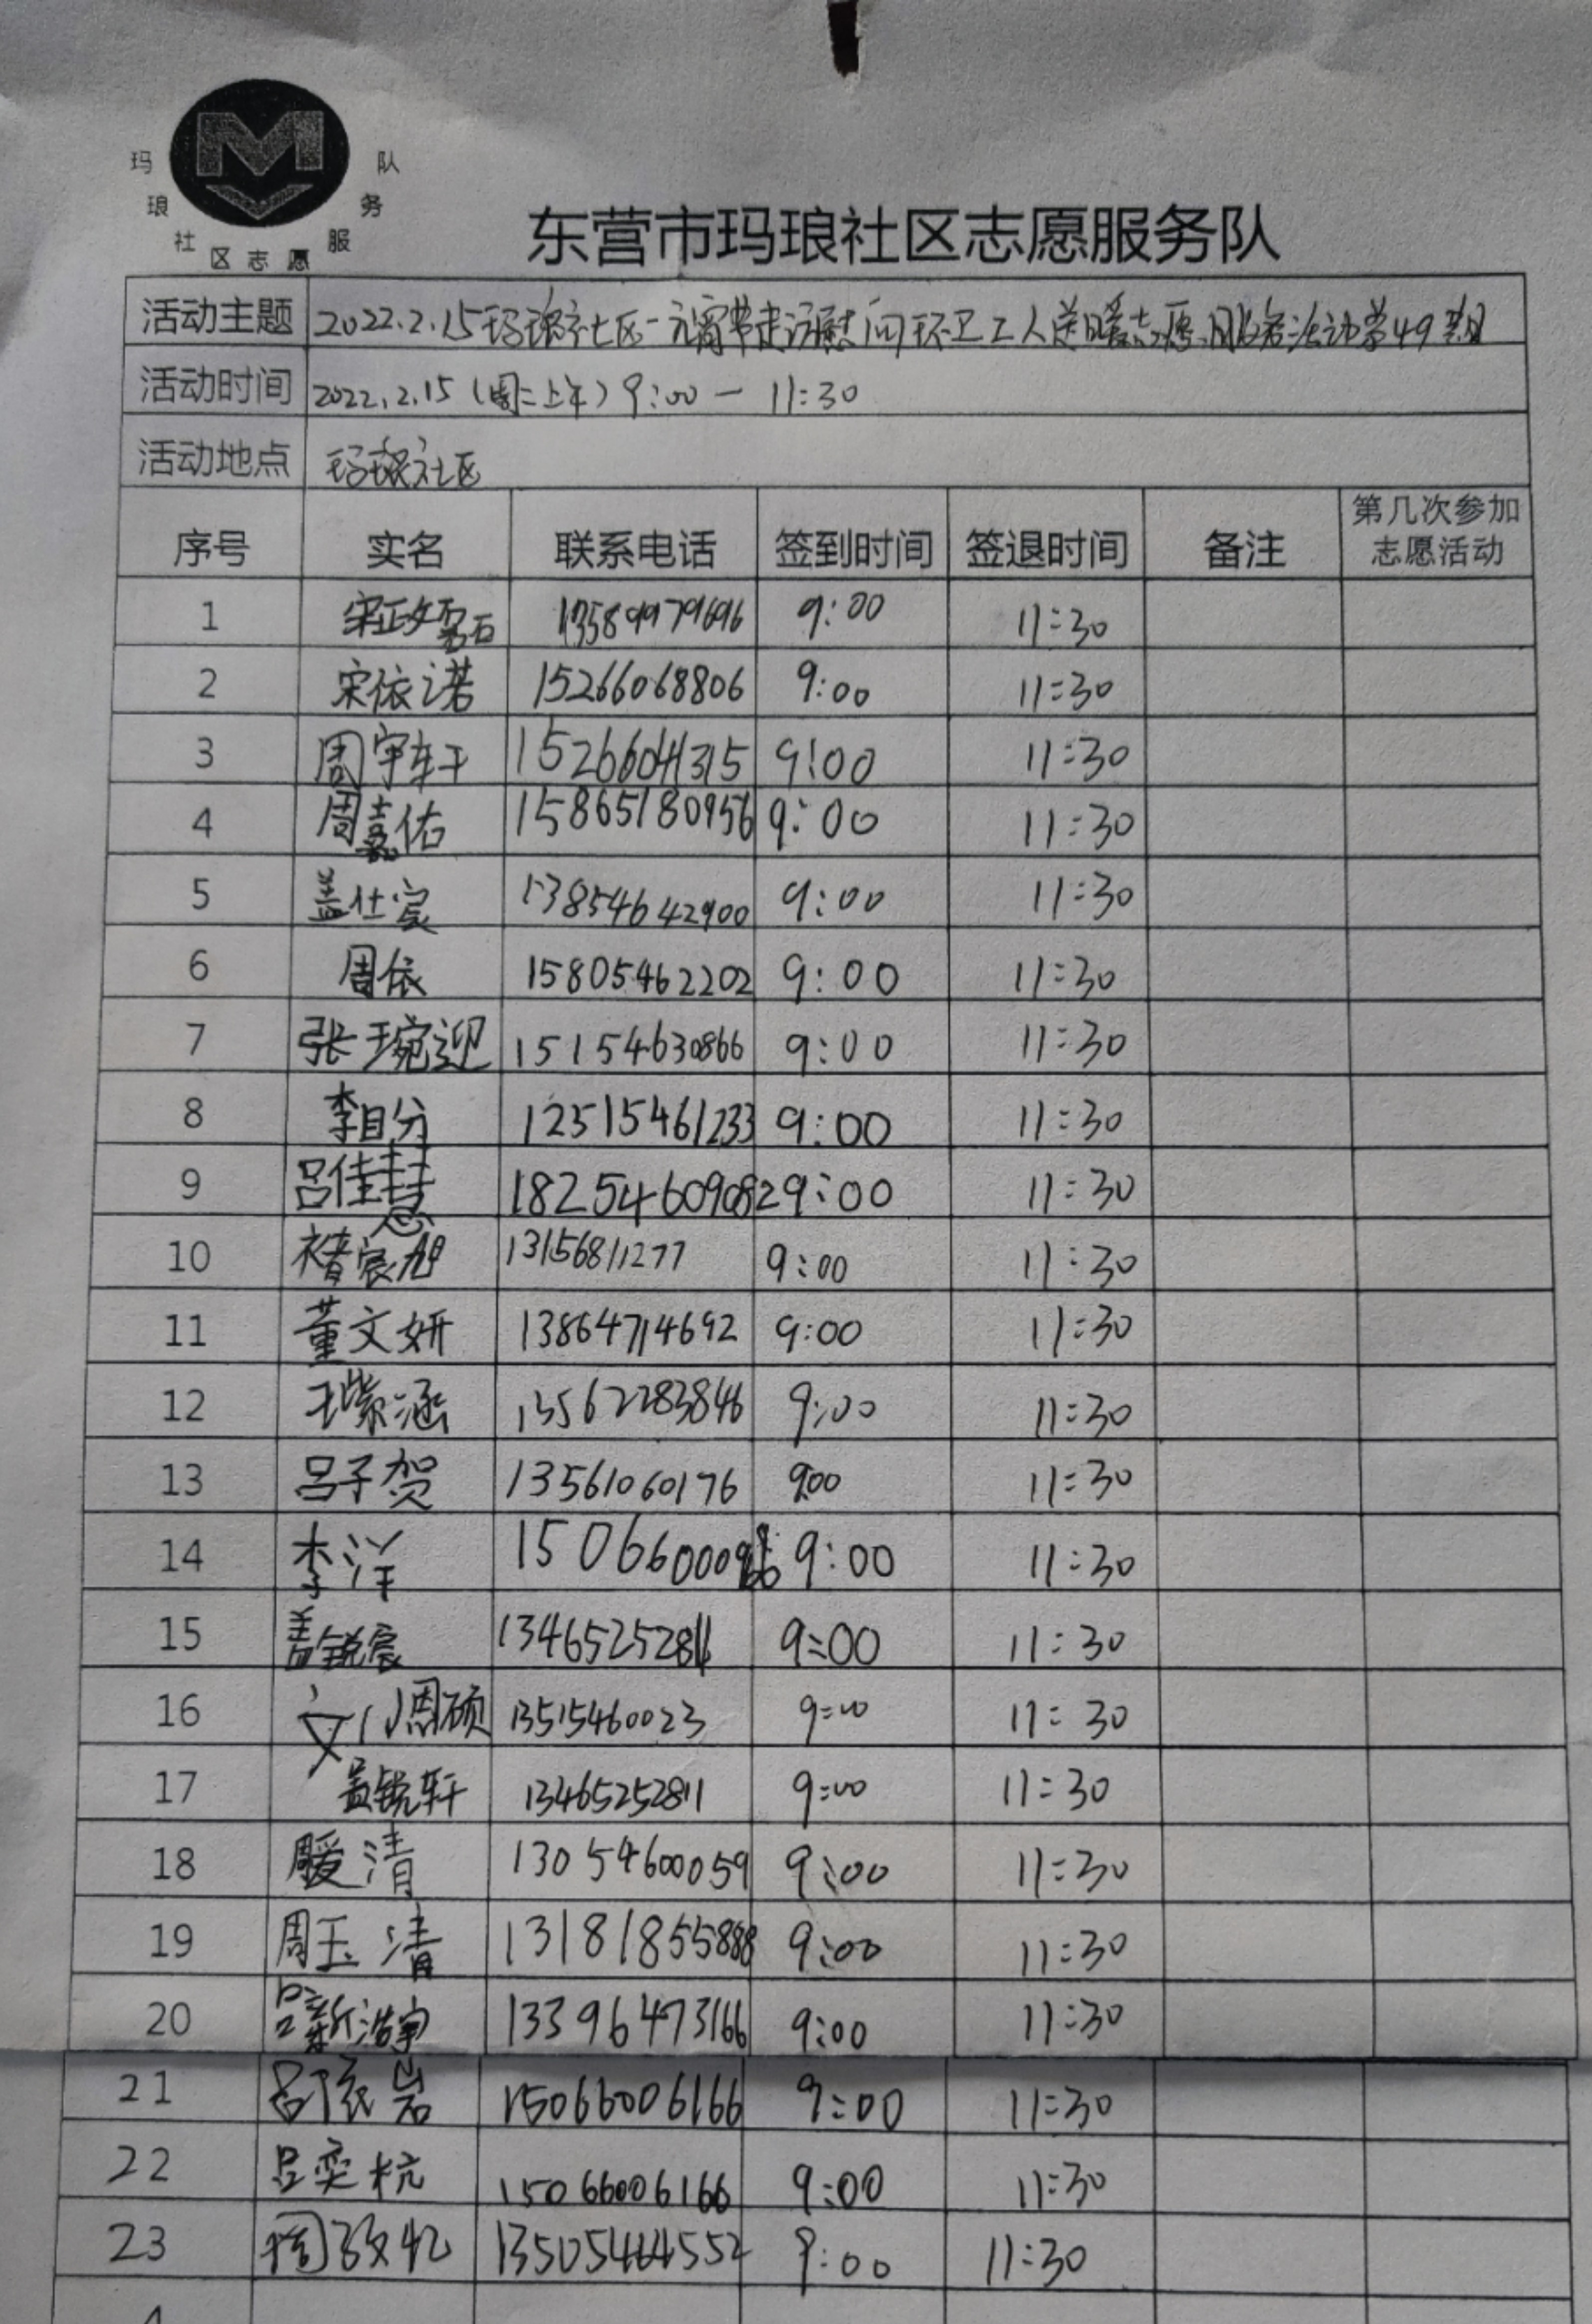 玛琅社区志愿服务队
东营市玛琅社区志愿服务队
活动主题 2022.2.15玛琅社区-元宵节走访慰问环卫工人送暖志愿服务活动第49期
活动时间 2022.2.15(周二上午)9:00-11:30
活动地点 玛琅社区
序号 实名 联系电话 签到时间 签退时间 备注 第几次参加志愿活动
1 9:00 11:30
2 宋依诺 15266068806 9:00 11:30
3 周宇轩 15266041315 9:00 11:30
4 周嘉佑 15865180956 9:00 11:30
5 盖仕豪 13854642900 9:00 11:30
6 周依 15805462202 9:00 11:30
7 张琬迎 15154630866 9:00 11:30
8 李自分 12515461233 9:00 11:30
9 吕佳慧 18254609082 9:00 11:30
10 褚宸旭 13156811277 9:00 11:30
11 董文妍 13864714692 9:00 11:30
12 王紫涵 13562283846 9:00 11:30
13 吕子贺 13561060176 9:00 11:30
14 李洋 9:00 11:30
15 盖锐宸 13465252811 9:00 11:30
16 刘恩硕 13515460023 9:00 11:30
17 盖锐轩 13465252811 9:00 11:30
18 周暖清 13054600059 9:00 11:30
19 周玉清 13181855888 9:00 11:30
20 吕新浩宇 13396473166 9:00 11:30
21 吕依岩 15066006166 9:00 11:30
22 吕奕杭 15066006166 9:00 11:30
23 13505464552 9:00 11:30